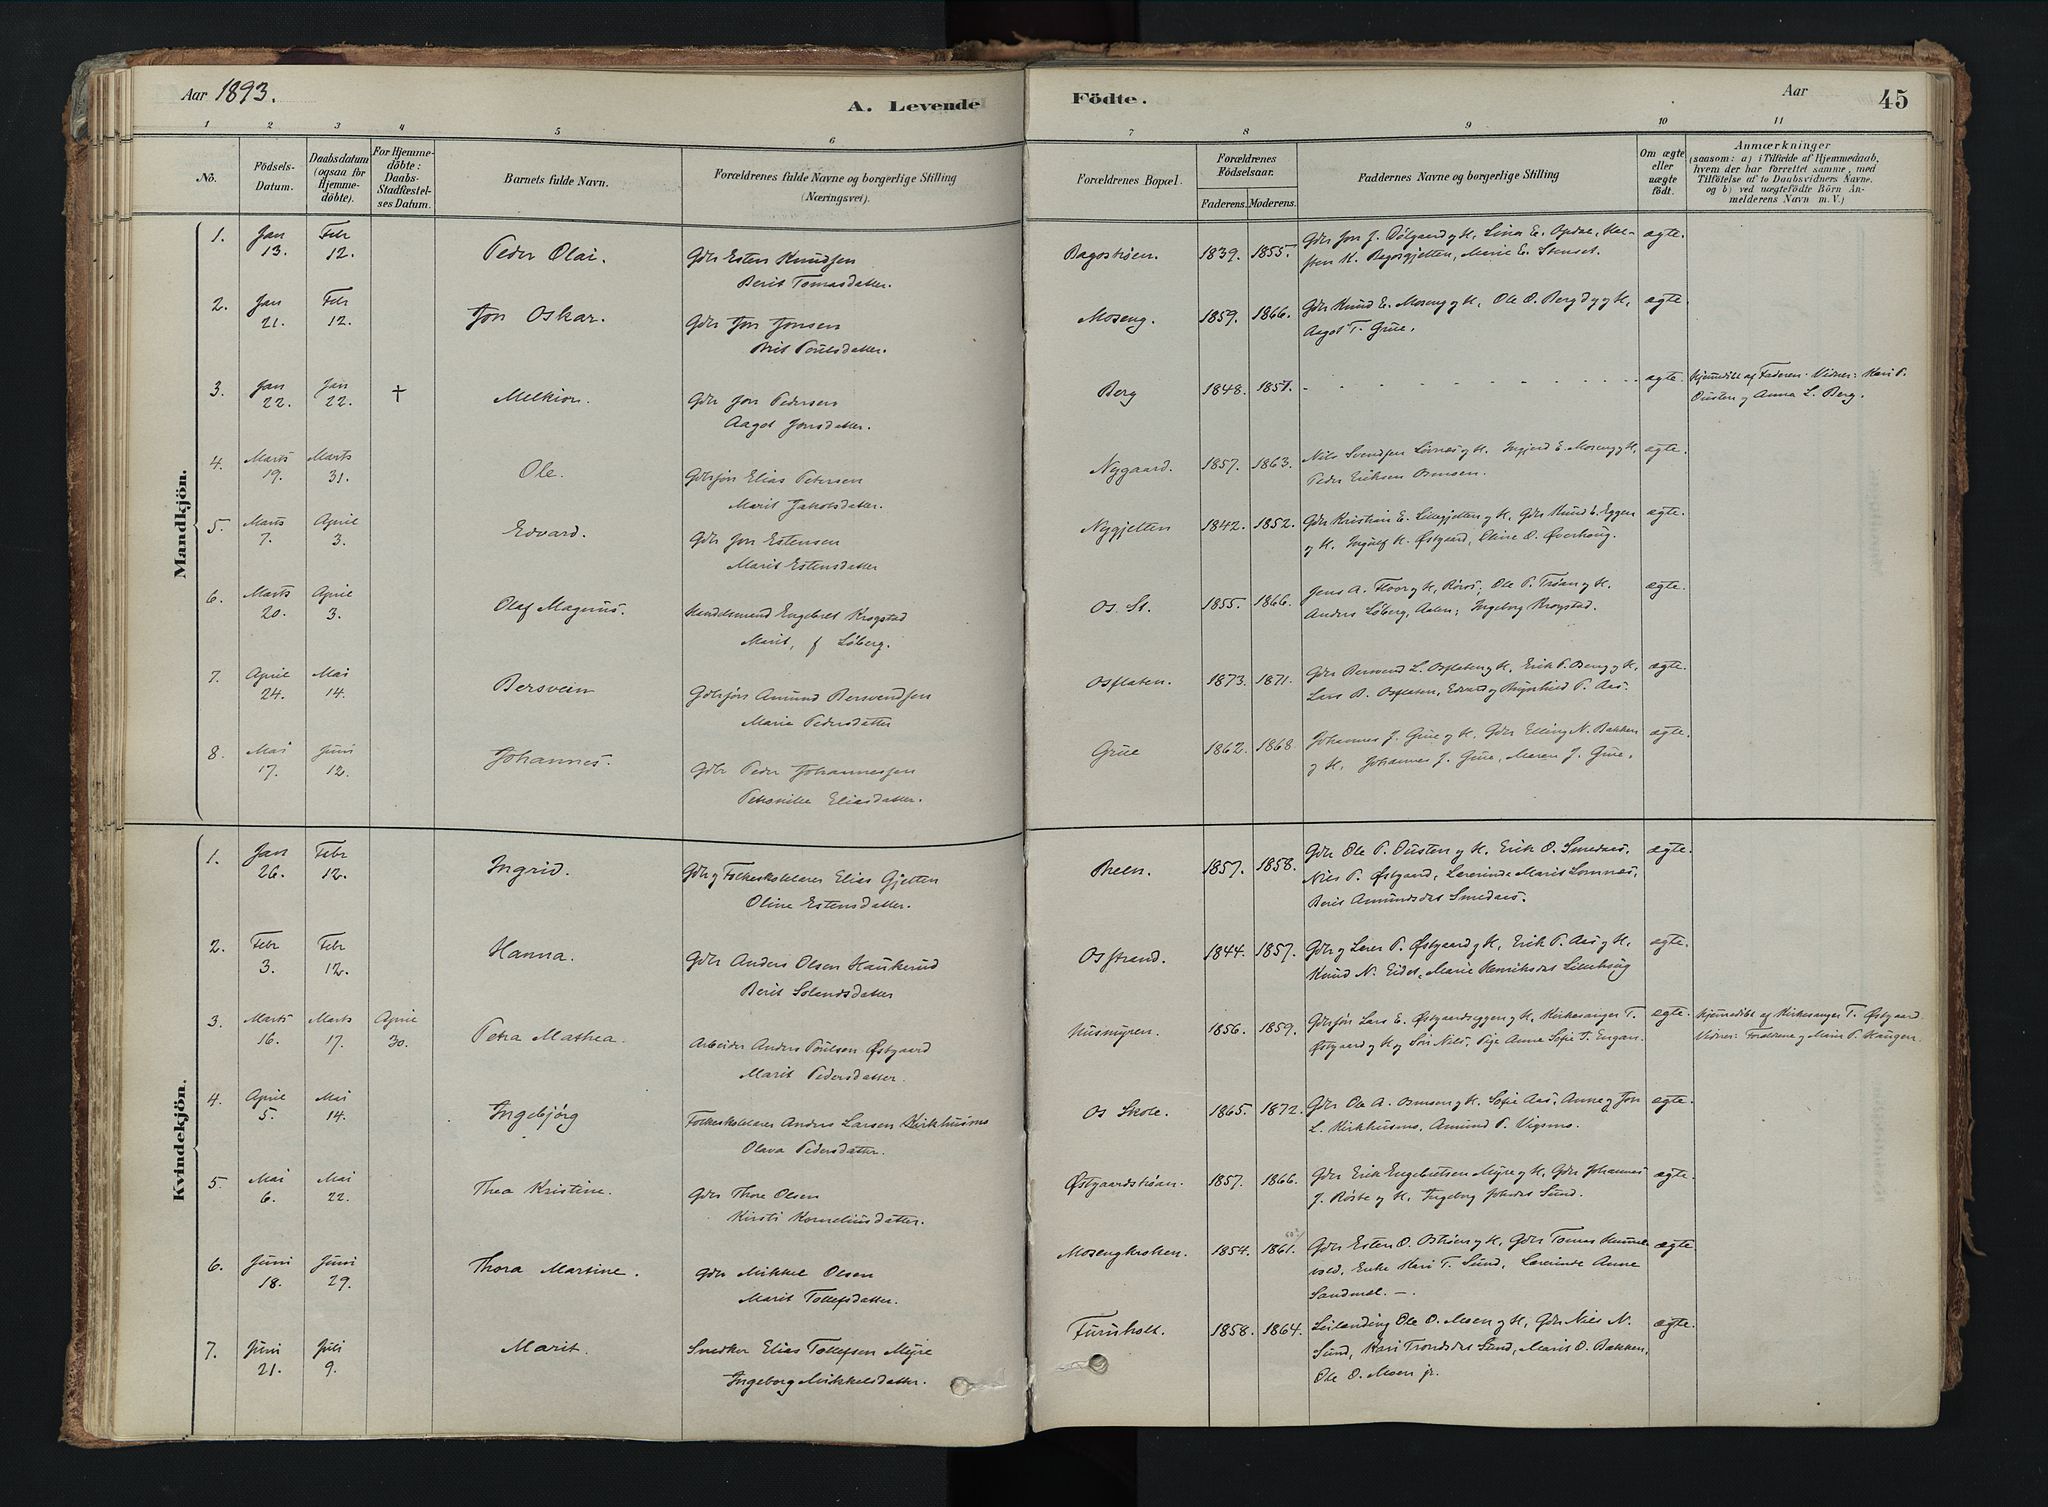 Aar 1893.
A. Levende Födte.
Aar
45
1 2 3 4 5 6 7 8 9 10 11
Nô.
Födsels-
Datum.
Daabsdatum
(ogsaa for
Hjemme-
döbte).
For Hjemme-
döbte:
Daabs-
Stadfæstel-
ses Datum.
Barnets fulde Navn.
Forældrenes fulde Navne og borgerlige Stilling
(Næringsvei).
Forældrenes Bopæl.
Forældrenes
Födselsaar.
Faderens. Moderens.
Faddernes Navne og borgerlige Stilling
Om ægte
eller
uægte
födt.
Anmærkninger
(saasom: a) i Tilfælde af Hjemmedaab,
hvem der har forrettet samme, med
Tilföielse af to Daabsvidners Navne.
og b) ved uægtefödte Börn An-
melderens Navn m. V.)
Mandkjön.
1. Jan 13. Febr 12. Peder Olai. Gdbr Esten Knudsen
Berit Tomasdatter.
Bagostrøen. 1839. 1855. Gdbr Jon J. Dølgaard og H., Lina E. Opdal, Hal-
sten K. Bagosgjetten, Marie E. Stenset. ægte.
2. Jan 21. Febr 12. Jon Oskar. Gdbr Jon Jonsen
Brit Poulsdatter.
Moseng. 1859. 1866. Gdbr Knud E. Moseng og H., Ole O. Berg og H.,
Aagot T. Grue. ægte
3. Jan 22. Jan 22. † Melkior. Gdbr Jon Pedersen
Aagot Jonsdatter.
Berg 1848. 1851. ægte. Hjemmedøbt af Faderen. Vidner: Kari P.
Ousten og Anna L. Berg.
4. Marts 19. Marts 31. Ole. Gdbrsøn Elias Petersen
Marit Jakobsdatter.
Nygaard. 1857. 1863. Nils Svendsen Lovnæs og H., Ingjerd E. Moseng og H.,
Peder Eriksen Osmoen. ægte.
5. Marts 7. April 3. Edvard. Gdbr Jon Estensen
Marit Estensdatter
Nygjetten 1842. 1852. Gdbr Kristian E. Lillegjetten og H., Gdbr Knud E. Eggen
og H., Ingulf K. Østgaard, Eline O. Øverhoug. ægte.
6. Marts 20. April 3. Olaf Magnus. Handelsmand Engebret Krogstad
Marit, f Løberg.
Os St. 1855. 1866. Jens A. Floor og H., Røros; Ole P. Trøan og H.
Anders Løberg, Aalen; Ingeborg Krogstad. ægte.
7. April 24. Mai 14. Bersvein Gdbrsøn Amund Bersvendsen
Maria Pedersdatter
Osflaten. 1873. 1871. Gdbr Bersvend L. Osflaten og H., Erik P. Oseng og H.,
Lars B. Osflaten, Edvard og Brynhild P. Aas. ægte.
8. Mai 17. Juni 12. Johannes. Gdbr Peder Johannessen
Petronille Eliasdatter.
Grue 1862. 1868 Johannes J. Grue og H. Gdbr Elling N. Bakken
og H., Johannes J. Grue, Maren J. Grue. ægte.
Kvindekjön.
1. Jan 26. Febr 12. Ingrid. Gdbr og Folkeskolelærer Elias Gjetten
Oline Estensdatter.
Breen. 1857. 1858. Gdbr Ole P. Ousten og H., Erik O. Smednes,
Nils P. Østgaard, Lærerinde Marit Lomnes,
Berit Amundsdat Smednes. ægte.
2. Febr 3. Febr 12. Hanna. Gdbr Anders Olsen Haukerud
Berit Solendsdatter
Osstrand. 1844. 1857. Gdbr og Lærer P. Østgaard og H., Erik P. Aas og H.,
Knud N. Eidet, Marie Henriksdat Lillehoug ægte.
3. Marts 16. Marts 17. April 30. Petra Mathea. Arbeider Anders Poulsen Østgaard
Marit Pedersdatter.
Husmyren. 1856. 1859. Gdbrsøn Lars E. Østgaardseggen og H., Kirkesanger T.
Østgaard og H. og Søn Nils, Pige Anne Sofie T. Engan. ægte. Hjemmedøbt af Kirkesanger T. Østgaard
Vidner: Forældrene og Marit P. Haugen.
4. April 5. Mai 14. Ingebjørg Folkeskolelærer Anders Larsen Kirkhusmo
Olava Pedersdatter.
Os Skole. 1865. 1872. Gdbr Ole A. Osmoen og H. Sofie Aas, Anne og Jon
L. Kirkhusmo, Amund P. Vigsmo. ægte.
5. Mai 6. Mai 22. Thea Kristine. Gdbr Thore Olsen
Kirsti Korneliusdatter.
Østgaardstrøan. 1857. 1866. Gdbr Erik Engebretsen Myre og H., Gdbr Johannes
J. Røste og H., Ingeborg Johnsdat Sund. ægte.
6. Juni 18. Juni 29. Thora Martine. Gdbr Mikkel Olsen
Marit Tollefsdatter.
Mosengkroken. 1854. 1861. Gdbr Esten O. Ostrøen og H., Gdbr Tomas Hummel-
vold, Enke Kari T. Sund, Lærerinde Anne
Sandmæl. —. ægte
7. Juni 21. Juli 9. Marit. Snedker Elias Tollefsen Myre
Ingeborg Mikkelsdatter.
Furuholt. 1858. 1864. Leilending Ole O. Moen og H., Gdbr Nils N.
Sund, Kari Trondsdat Sund, Marit O. Bakken,
Ole O. Moen jr. ægte.